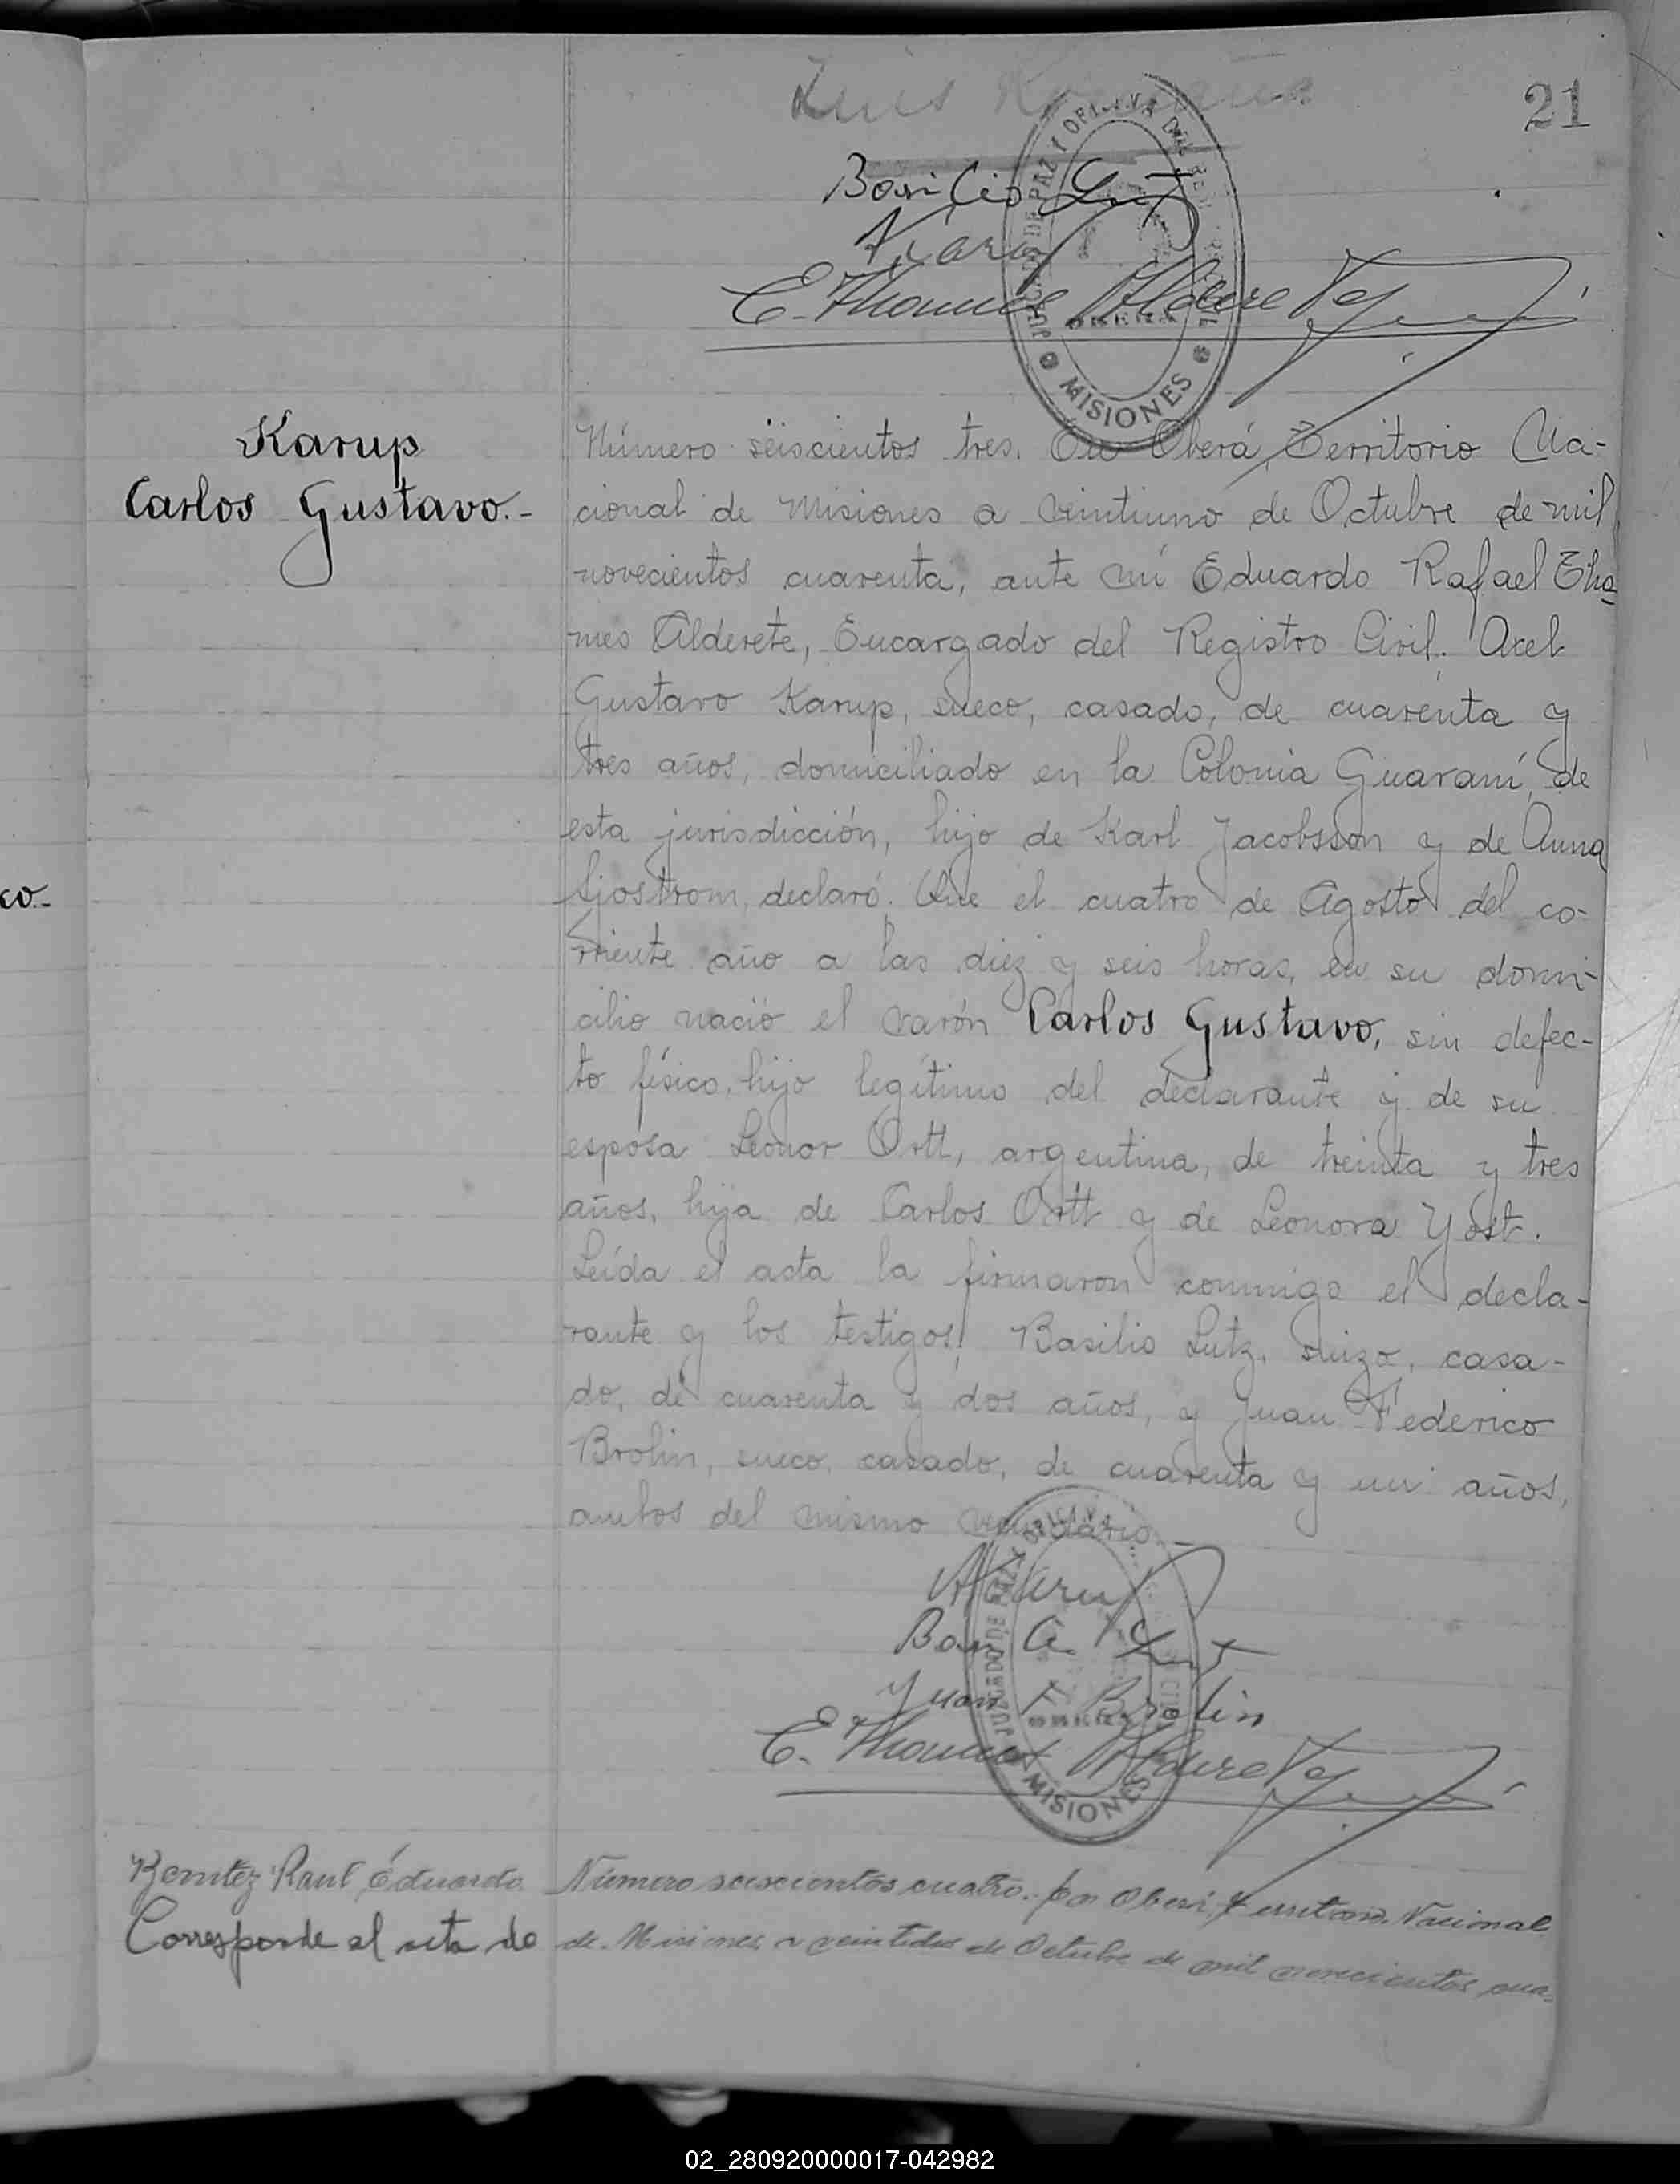 21
Luis
Basilio Lutz
E. Thames Alderete
JUZGADO DE PAZ Y OFICINA DEL REGISTRO CIVIL
OBERA
MISIONES
Karup
Carlos Gustavo.-
Número seiscientos tres. En Oberá, Territorio Na-
cional de Misiones a veintiuno de Octubre de mil
novecientos cuarenta, ante mí Eduardo Rafael Tha-
mes Alderete, Encargado del Registro Civil. Axel
Gustavo Karup, sueco, casado, de cuarenta y
tres años, domiciliado en la Colonia Guaraní, de
esta jurisdicción, hijo de Karl Jacobsson y de Anna
Sjostrom, declaró: Que el cuatro de Agosto del co-
rriente año a las diez y seis horas, en su domi-
cilio nació el varón Carlos Gustavo, sin defec-
to físico, hijo legítimo del declarante y de su
esposa Leonor Ortt, argentina, de treinta y tres
años, hija de Carlos Ortt y de Leonora Yost.
Leída el acta la firmaron conmigo el decla-
rante y los testigos: Basilio Lutz, suizo, casa-
do, de cuarenta y dos años, y Juan Federico
Brolin, sueco, casado, de cuarenta y un años,
ambos del mismo vecindario.-
co.-
AKarup
Basilio Lutz
Juan F Brolin
E. Thames Alderete
MISIONES
Benitez Raul Eduardo
Corresponde al acta de
Número seiscientos cuatro. En Oberá, Territorio Nacional
de Misiones a veintidos de Octubre de mil novecientos cua-
02_280920000017-042982